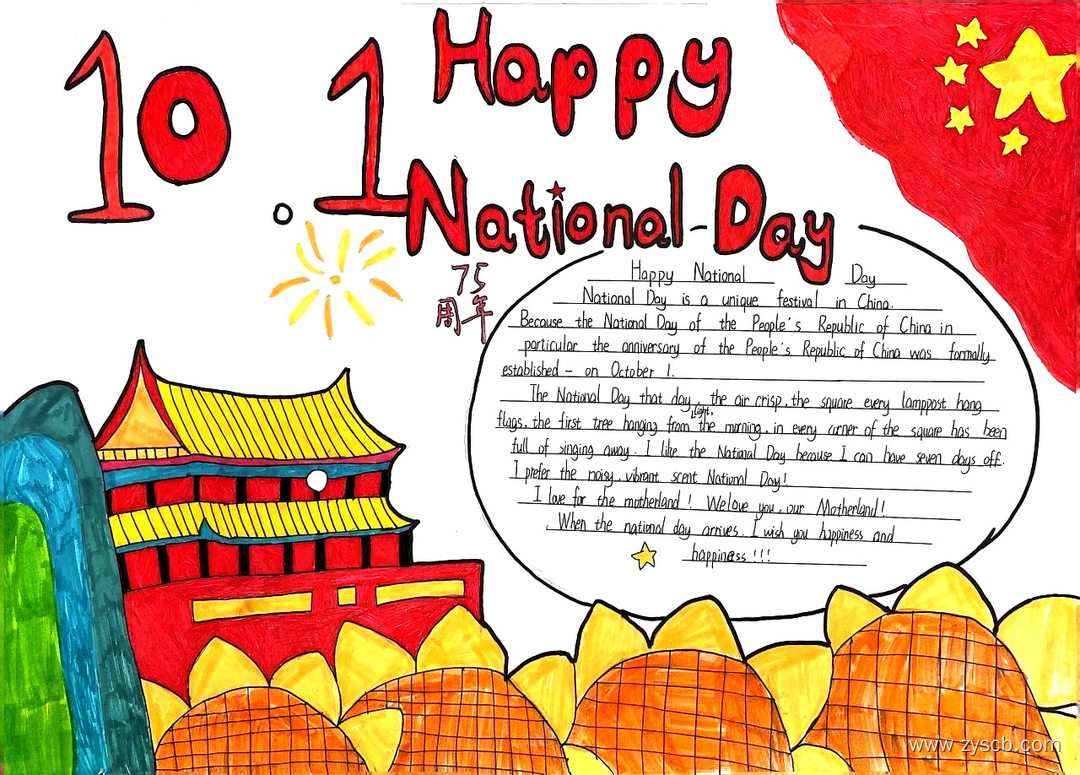 10.1
Happy
National Day
75
周年
Happy National Day
National Day is a unique festival in China.
Because the National Day of the People's Republic of China in
particular the anniversary of the People's Republic of China was formally
established - on October 1.
The National Day that day, the air crisp, the square every lamppost hang
flags, the first tree hanging from the morning light, in every corner of the square has been
full of singing away. I like the National Day because I can have seven days off.
I prefer the noisy, vibrant scent National Day!
I love for the motherland! We love you, our Motherland!
When the national day arrives, I wish you happiness and
happiness!!!
www.zyscb.com